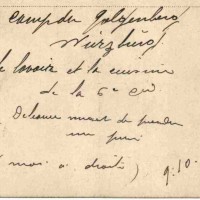 Camp du Galgenberg
Würzburg
le lavoir et la cuisine
de la 6e Cie
Delaune vient de prendre
un
(moi à droite) 9.10.